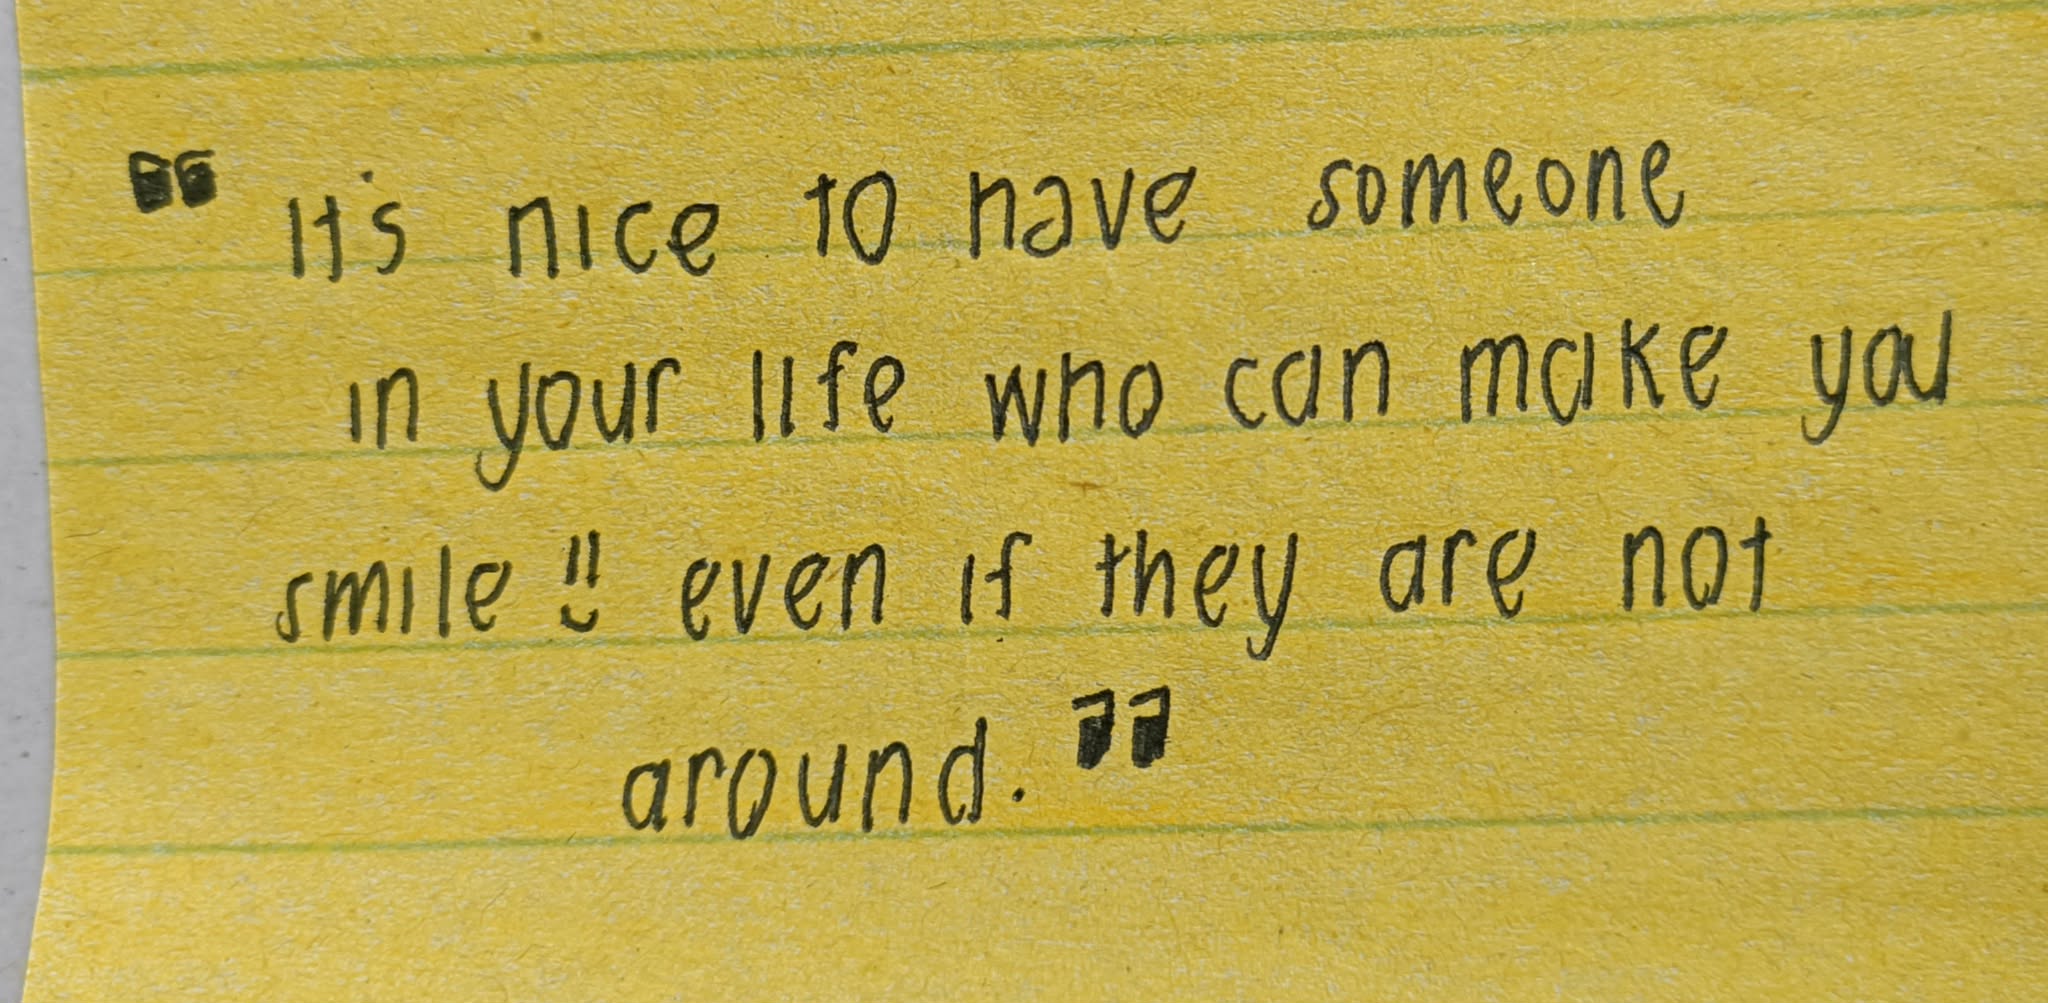 "It's nice to have someone
in your life who can make you
smile :) even if they are not
around."